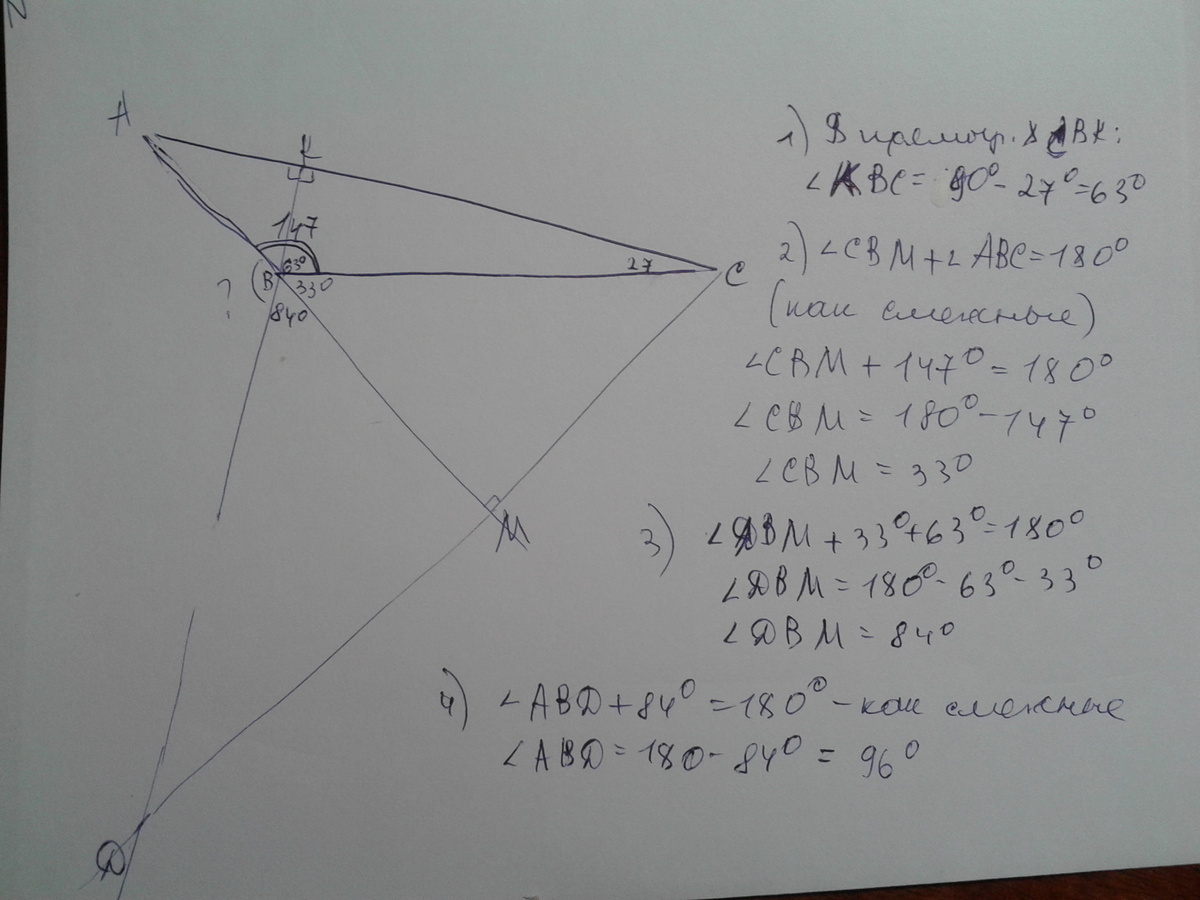 A
K
147
63°
B
33°
27
C
?
84°
M
D
1) В прямоуг. △ CBK:
∠KBC = 90° - 27° = 63°
2) ∠CBM + ∠ABC = 180°
(как смежные)
∠CBM + 147° = 180°
∠CBM = 180° - 147°
∠CBM = 33°
3) ∠DBM + 33° + 63° = 180°
∠DBM = 180° - 63° - 33°
∠DBM = 84°
4) ∠ABD + 84° = 180° - как смежные
∠ABD = 180 - 84° = 96°